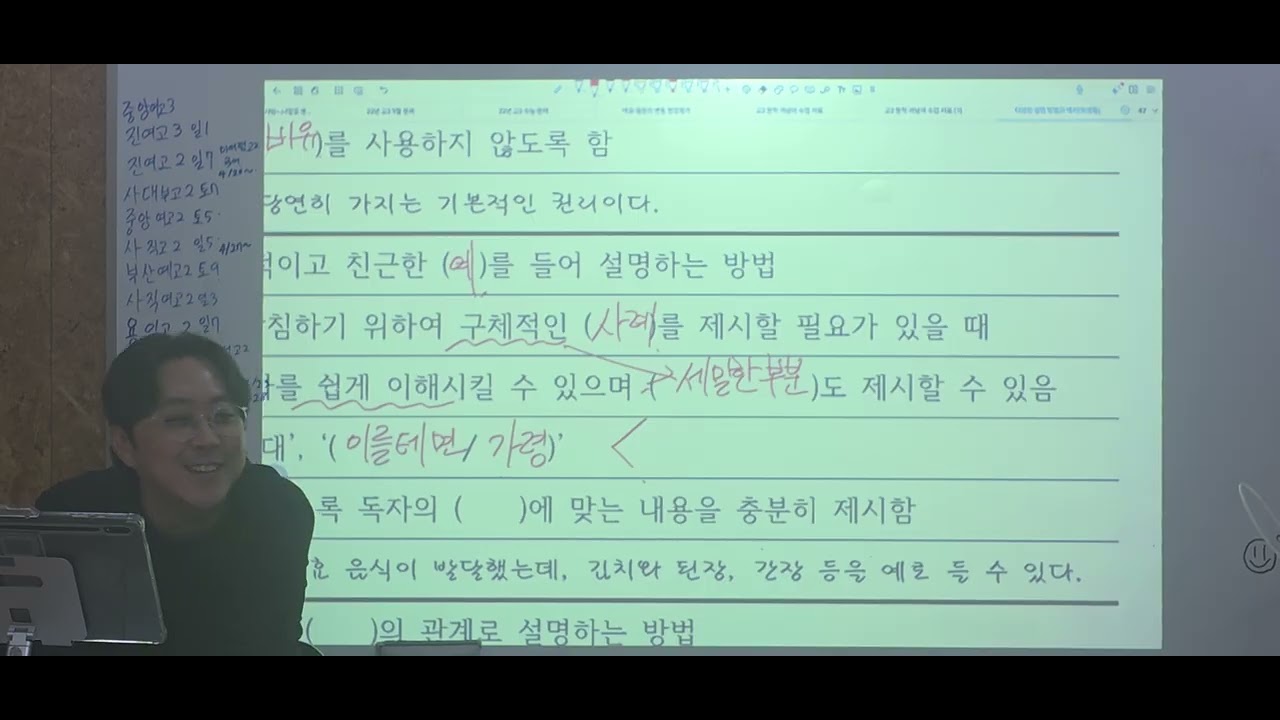 중앙여고3
진여고3 일1
진여고2 일7
4/20~
사대부고2 토7
중앙여고2 토5
사직고2 일5 4/27~
북산여고2 토9
사직여고2 일3
용인고2 일7
바유)를 사용하지 않도록 함
당연히 가지는 기본적인 권리이다.
적이고 친근한 (예)를 들어 설명하는 방법
침하기 위하여 구체적인 (사례)를 제시할 필요가 있을 때
를 쉽게 이해시킬 수 있으며 세밀한 부분)도 제시할 수 있음
대’, ‘(이를테면/ 가령)’
록 독자의 ( )에 맞는 내용을 충분히 제시함
효 음식이 발달했는데, 김치와 된장, 간장 등을 예로 들 수 있다.
( )의 관계로 설명하는 방법